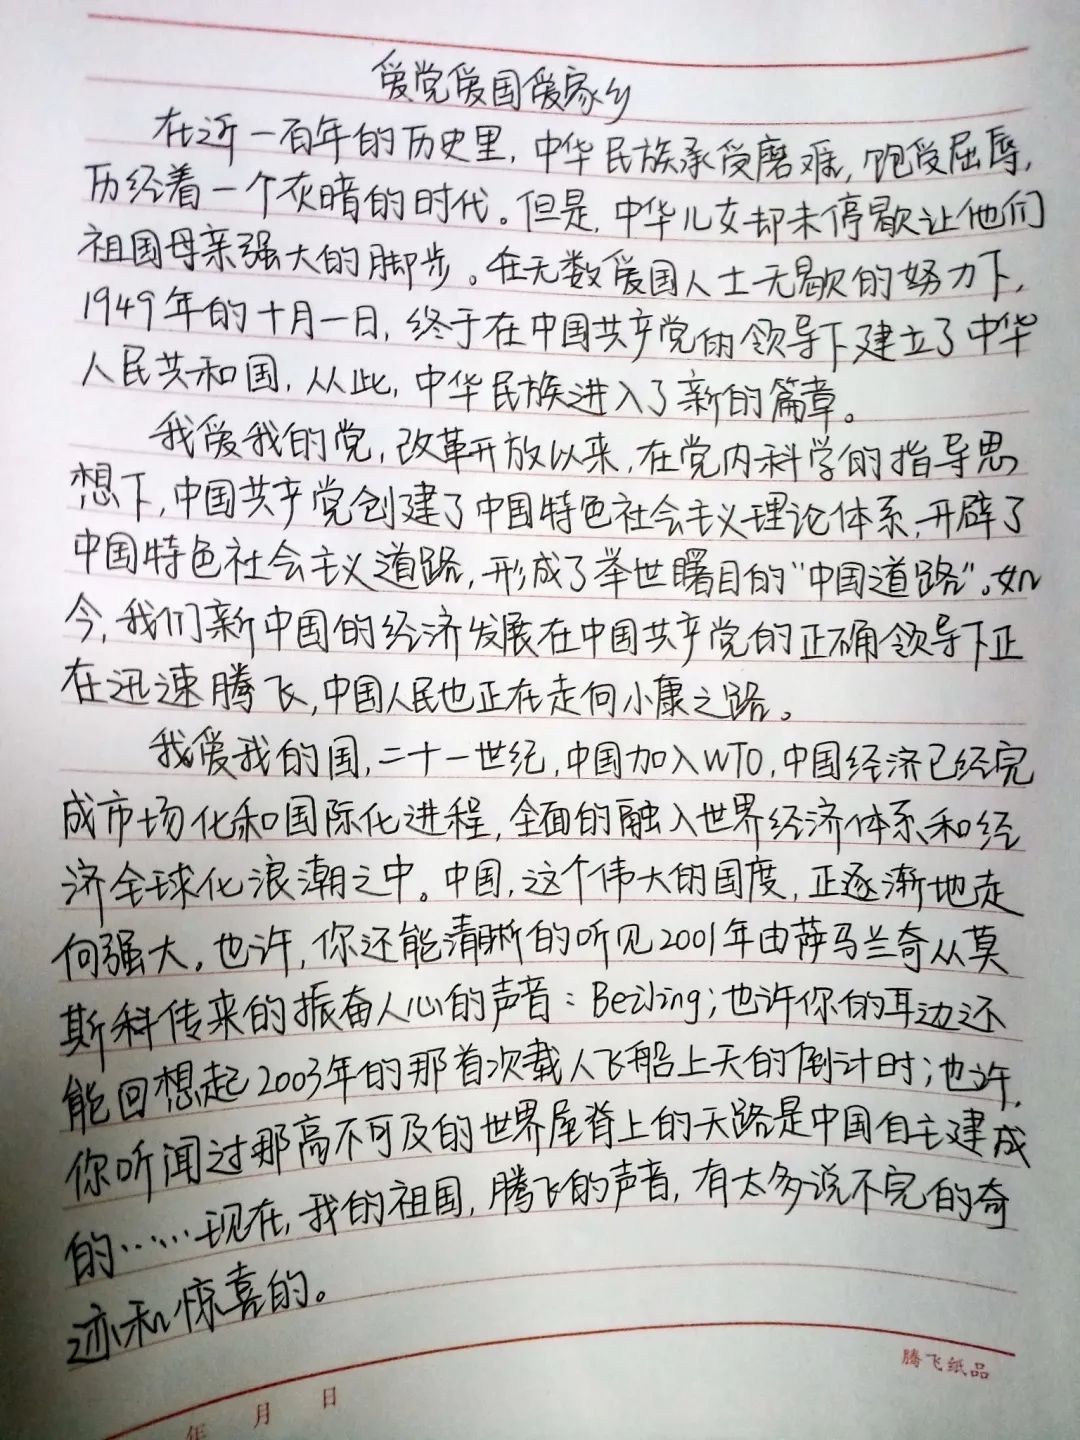 爱党爱国爱家乡
在近一百年的历史里,中华民族承受磨难,饱受屈辱,
历经着一个灰暗的时代。但是,中华儿女却未停歇让他们
祖国母亲强大的脚步。在无数爱国人士无歇的努力下,
1949年的十月一日,终于在中国共产党的领导下建立了中华
人民共和国,从此,中华民族进入了新的篇章。
我爱我的党,改革开放以来,在党内科学的指导思
想下,中国共产党创建了中国特色社会主义理论体系,开辟了
中国特色社会主义道路,形成了举世瞩目的“中国道路”。如
今,我们新中国的经济发展在中国共产党的正确领导下正
在迅速腾飞,中国人民也正在走向小康之路。
我爱我的国,二十一世纪,中国加入WTO,中国经济已经完
成市场化和国际化进程,全面的融入世界经济体系和经
济全球化浪潮之中。中国,这个伟大的国度,正逐渐地走
向强大。也许,你还能清晰的听见2001年由萨马兰奇从莫
斯科传来的振奋人心的声音:Beijing;也许你的耳边还
能回想起2003年的那首次载人飞船上天的倒计时;也许,
你听闻过那高不可及的世界屋脊上的天路是中国自主建成
的……现在,我的祖国,腾飞的声音,有太多说不完的奇
迹和惊喜的。
腾飞纸品
年 月 日